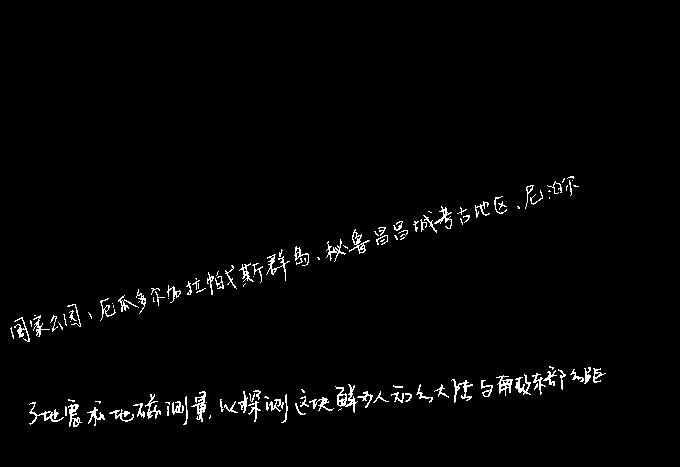 国家公园、厄瓜多尔加拉帕戈斯群岛、秘鲁昌昌城考古地区、尼泊尔
了地震和地磁测量,以探测这块鲜为人知的大陆与南极东部的距